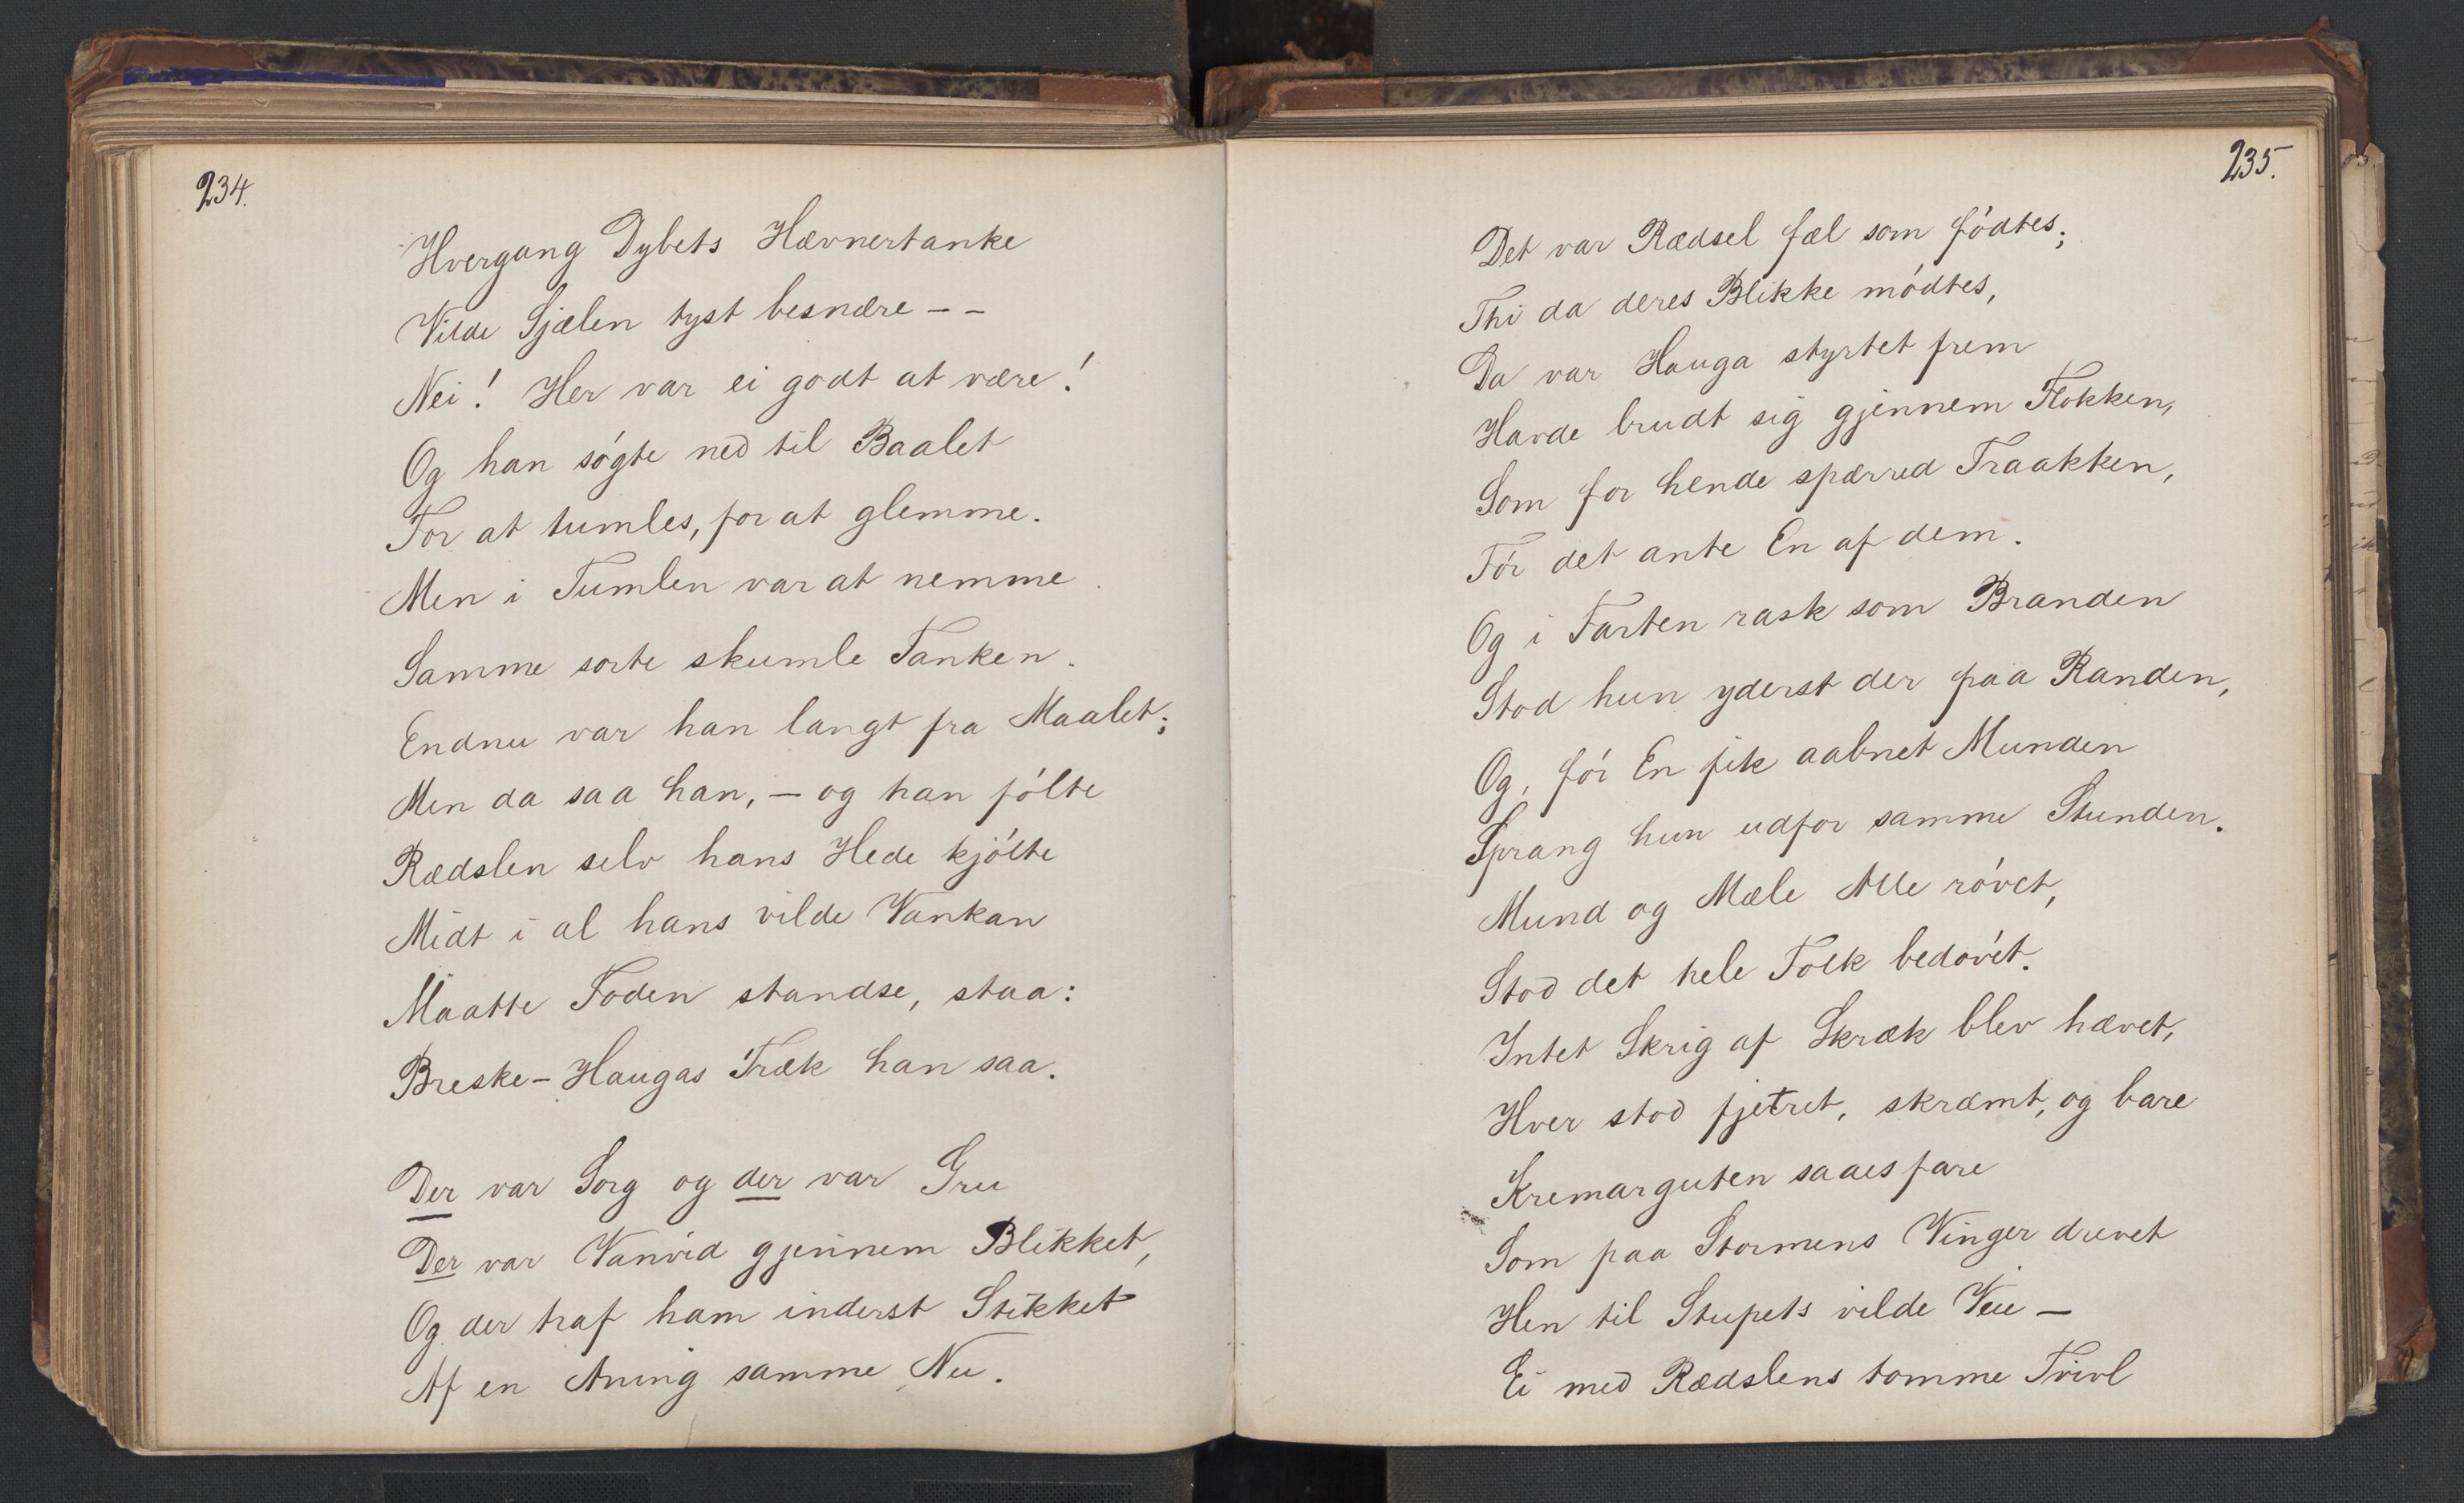 234.
Hvergang Dybets Hævnertanke
Vilde Sjælen tyst besnære - -
Nei! Her var ei godt at være!
Og han søgte ned til Baalet
For at tumles, for at glemme.
Men i Tumlen var at nemme
Samme sorte skumle Tanken.
Endnu var han langt fra Maalet;
Men da saa han, – og han følte
Rædslen selv hans Hede kjølte
Midt i al hans vilde Vankan
Maatte Foden standse, staa:
Breske-Haugas Træk han saa.
Der var Sorg og der var Gru
Der var Vanvid gjennem Blikket,
Og der traf ham inderst Stikket
Af en Aning samme Nu.
235.
Det var Rædsel fæl som fødtes;
Thi da deres Blikke mødtes,
Da var Hauga styrtet frem
Havde brudt sig gjennem Flokken,
Som for hende spærred Traakken,
Før det ante En af dem.
Og i Farten rask som Branden
Stod hun yderst der paa Randen,
Og, før En fik aabnet Munden
Sprang hun udfor samme Stunden.
Mund og Mæle Alle røvet,
Stod det hele Folk bedøvet.
Intet Skrig af Skræk blev hævet,
Hver stod fjetret, skræmt, og bare
Kremarguten saaes fare
Som paa Stormens Vinger drevet
Hen til Stupets vilde Vei –
Ei med Rædslens tomme Tvivl